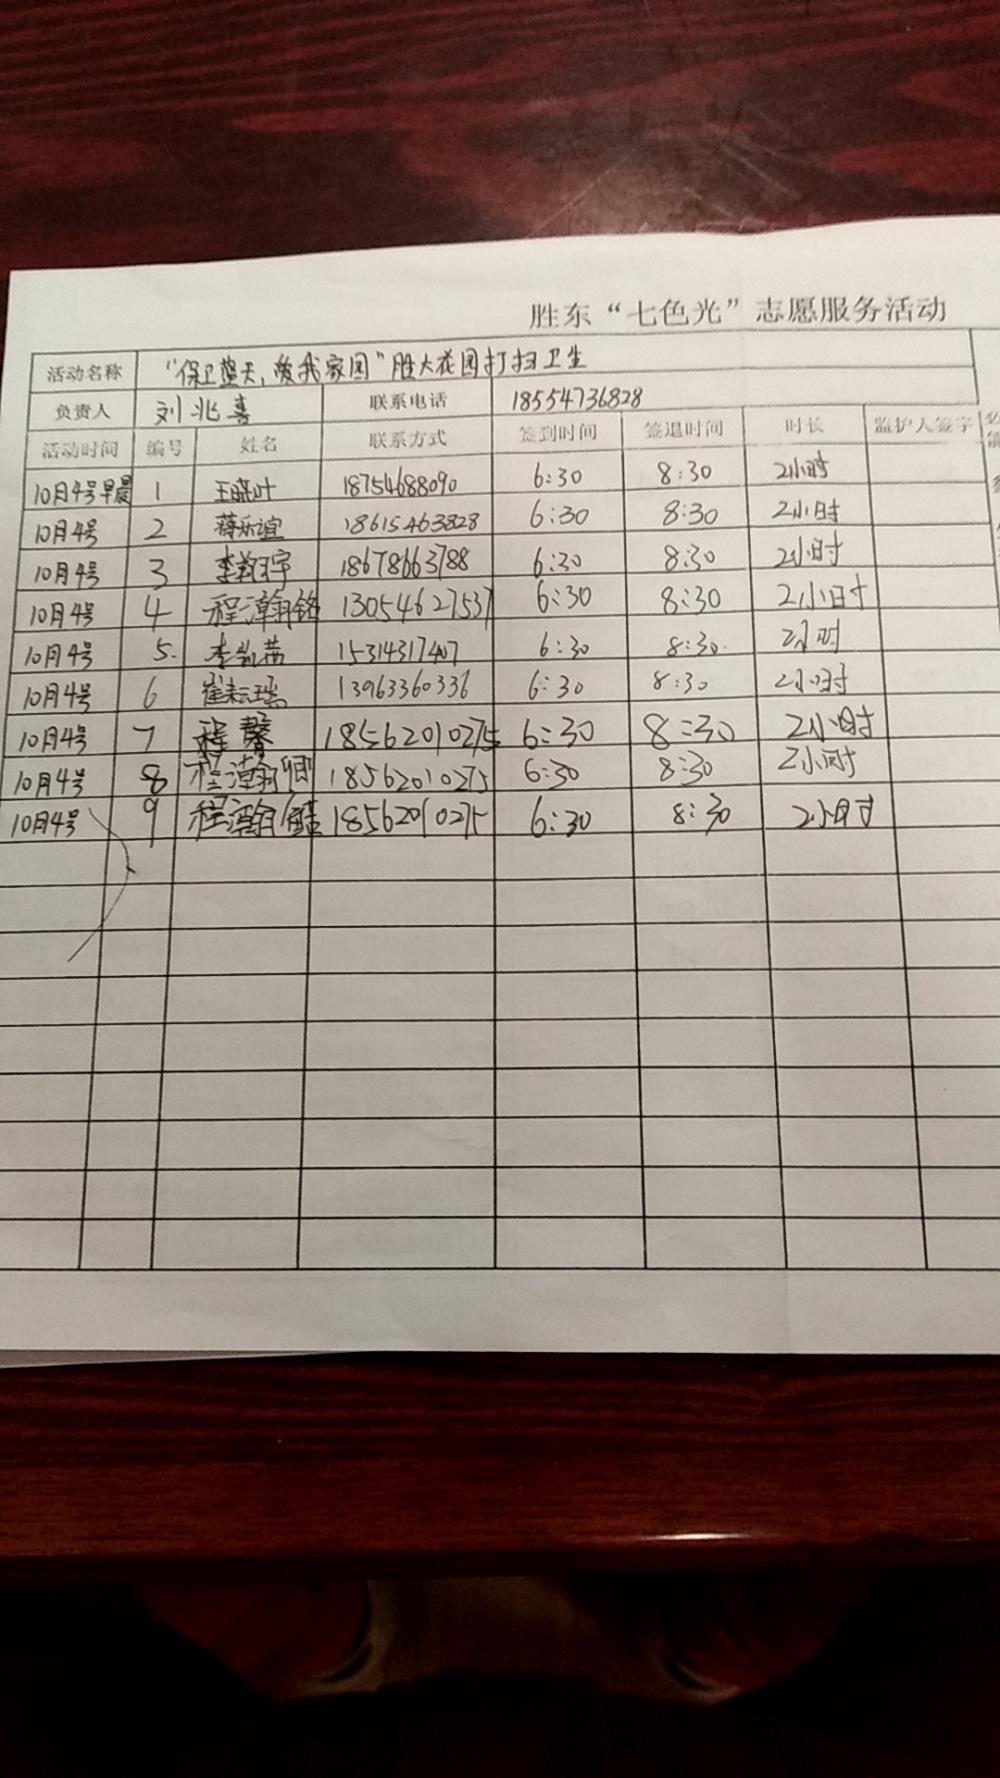 胜东“七色光”志愿服务活动
活动名称 “保卫蓝天，爱我家园”胜大花园打扫卫生
负责人 刘兆喜 联系电话 18554736828
活动时间 编号 姓名 联系方式 签到时间 签退时间 时长 监护人签字
10月4号早晨 1 王晓叶 18754688090 6:30 8:30 2小时
10月4号 2 蒋乐谊 18615463828 6:30 8:30 2小时
10月4号 3 李翰宇 18678663788 6:30 8:30 2小时
10月4号 4 程瀚铭 13054627537 6:30 8:30 2小时
10月4号 5. 李凯茜 15314317407 6:30 8:30. 2小时
10月4号 6 崔耘瑞 13963360336 6:30 8:30 2小时
10月4号 7 程馨 18562010275 6:30 8:30 2小时
10月4号 8 程瀚卿 18562010275 6:30 8:30 2小时
10月4号 9 程瀚 18562010275 6:30 8:30 2小时